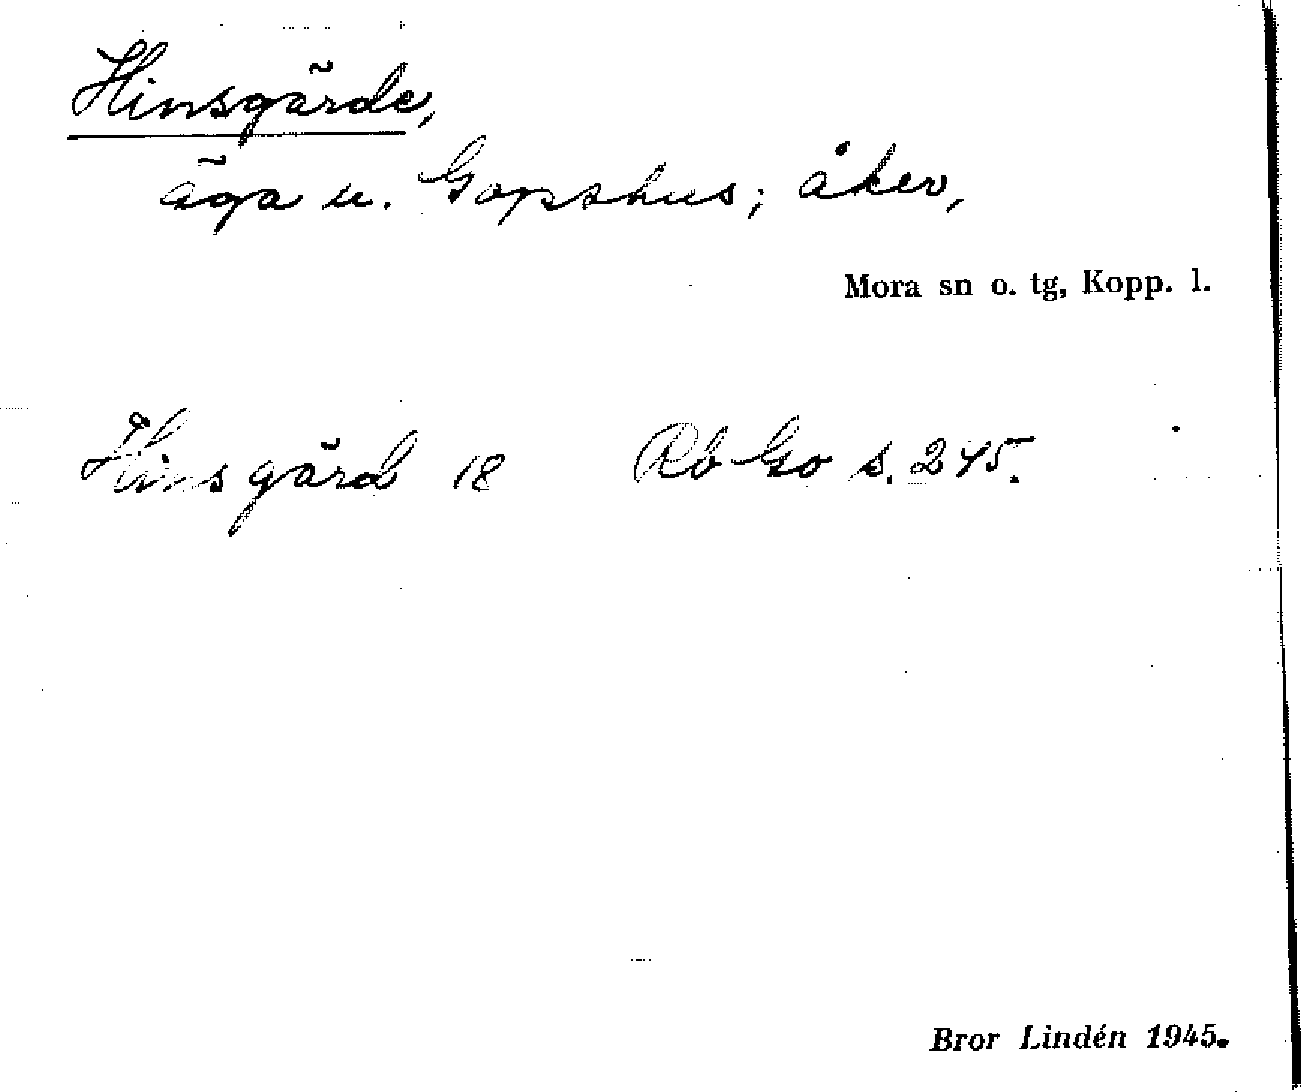 Hinsgärde,
äga u. Gopshus; åker,
Mora sn o. tg, Kopp. l.
Hins gärd 18 Rb Go s. 245.
Bror Lindén 1945.